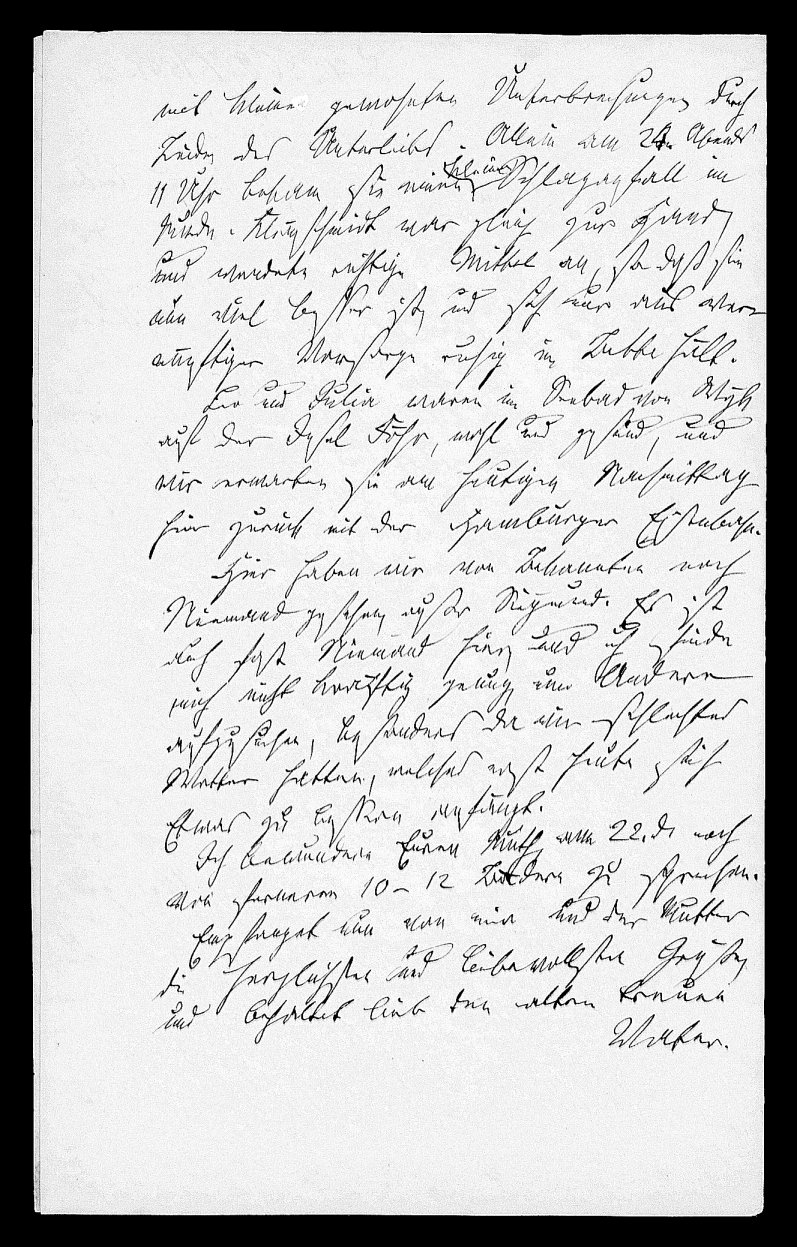 mit kleinen gewohnten Unterbrechungen durch
Leiden des Unterleibes. Allein am 24. Abends
11 Uhr bekam sie einen kleinen Schlaganfall im
Munde. Klugschmidt war gleich zur Hand
und wendete richtige Mittel an, so daß sie
nun viel besser ist, und sich nur aus ver-
nünftiger Vorsorge ruhig im Bette hält.
Leo und Julia waren im Seebad von Wyk
auf der Insel Föhr, wohl und gesund, und
wir erwarten sie am heutigen Nachmittag
hier zurück mit der Hamburger Eisenbahn.
Hier haben wir von Bekannten noch
Niemand gesehen außer Sigmund. Es ist
auch fast Niemand hier, und ich finde
mich nicht kräftig genug um Andere
aufzusuchen, besonders da wir schlechtes
Wetter hatten, welches erst heute sich
Etwas zu bessern anfängt.
Ich bewundere Euren Muth, am 22. d. noch
von ferneren 10 – 12 Bädern zu sprechen.
Empfanget nun von mir und der Mutter
die herzlichsten und liebevollsten Grüße,
und behaltet lieb den alten treuen
Vater.